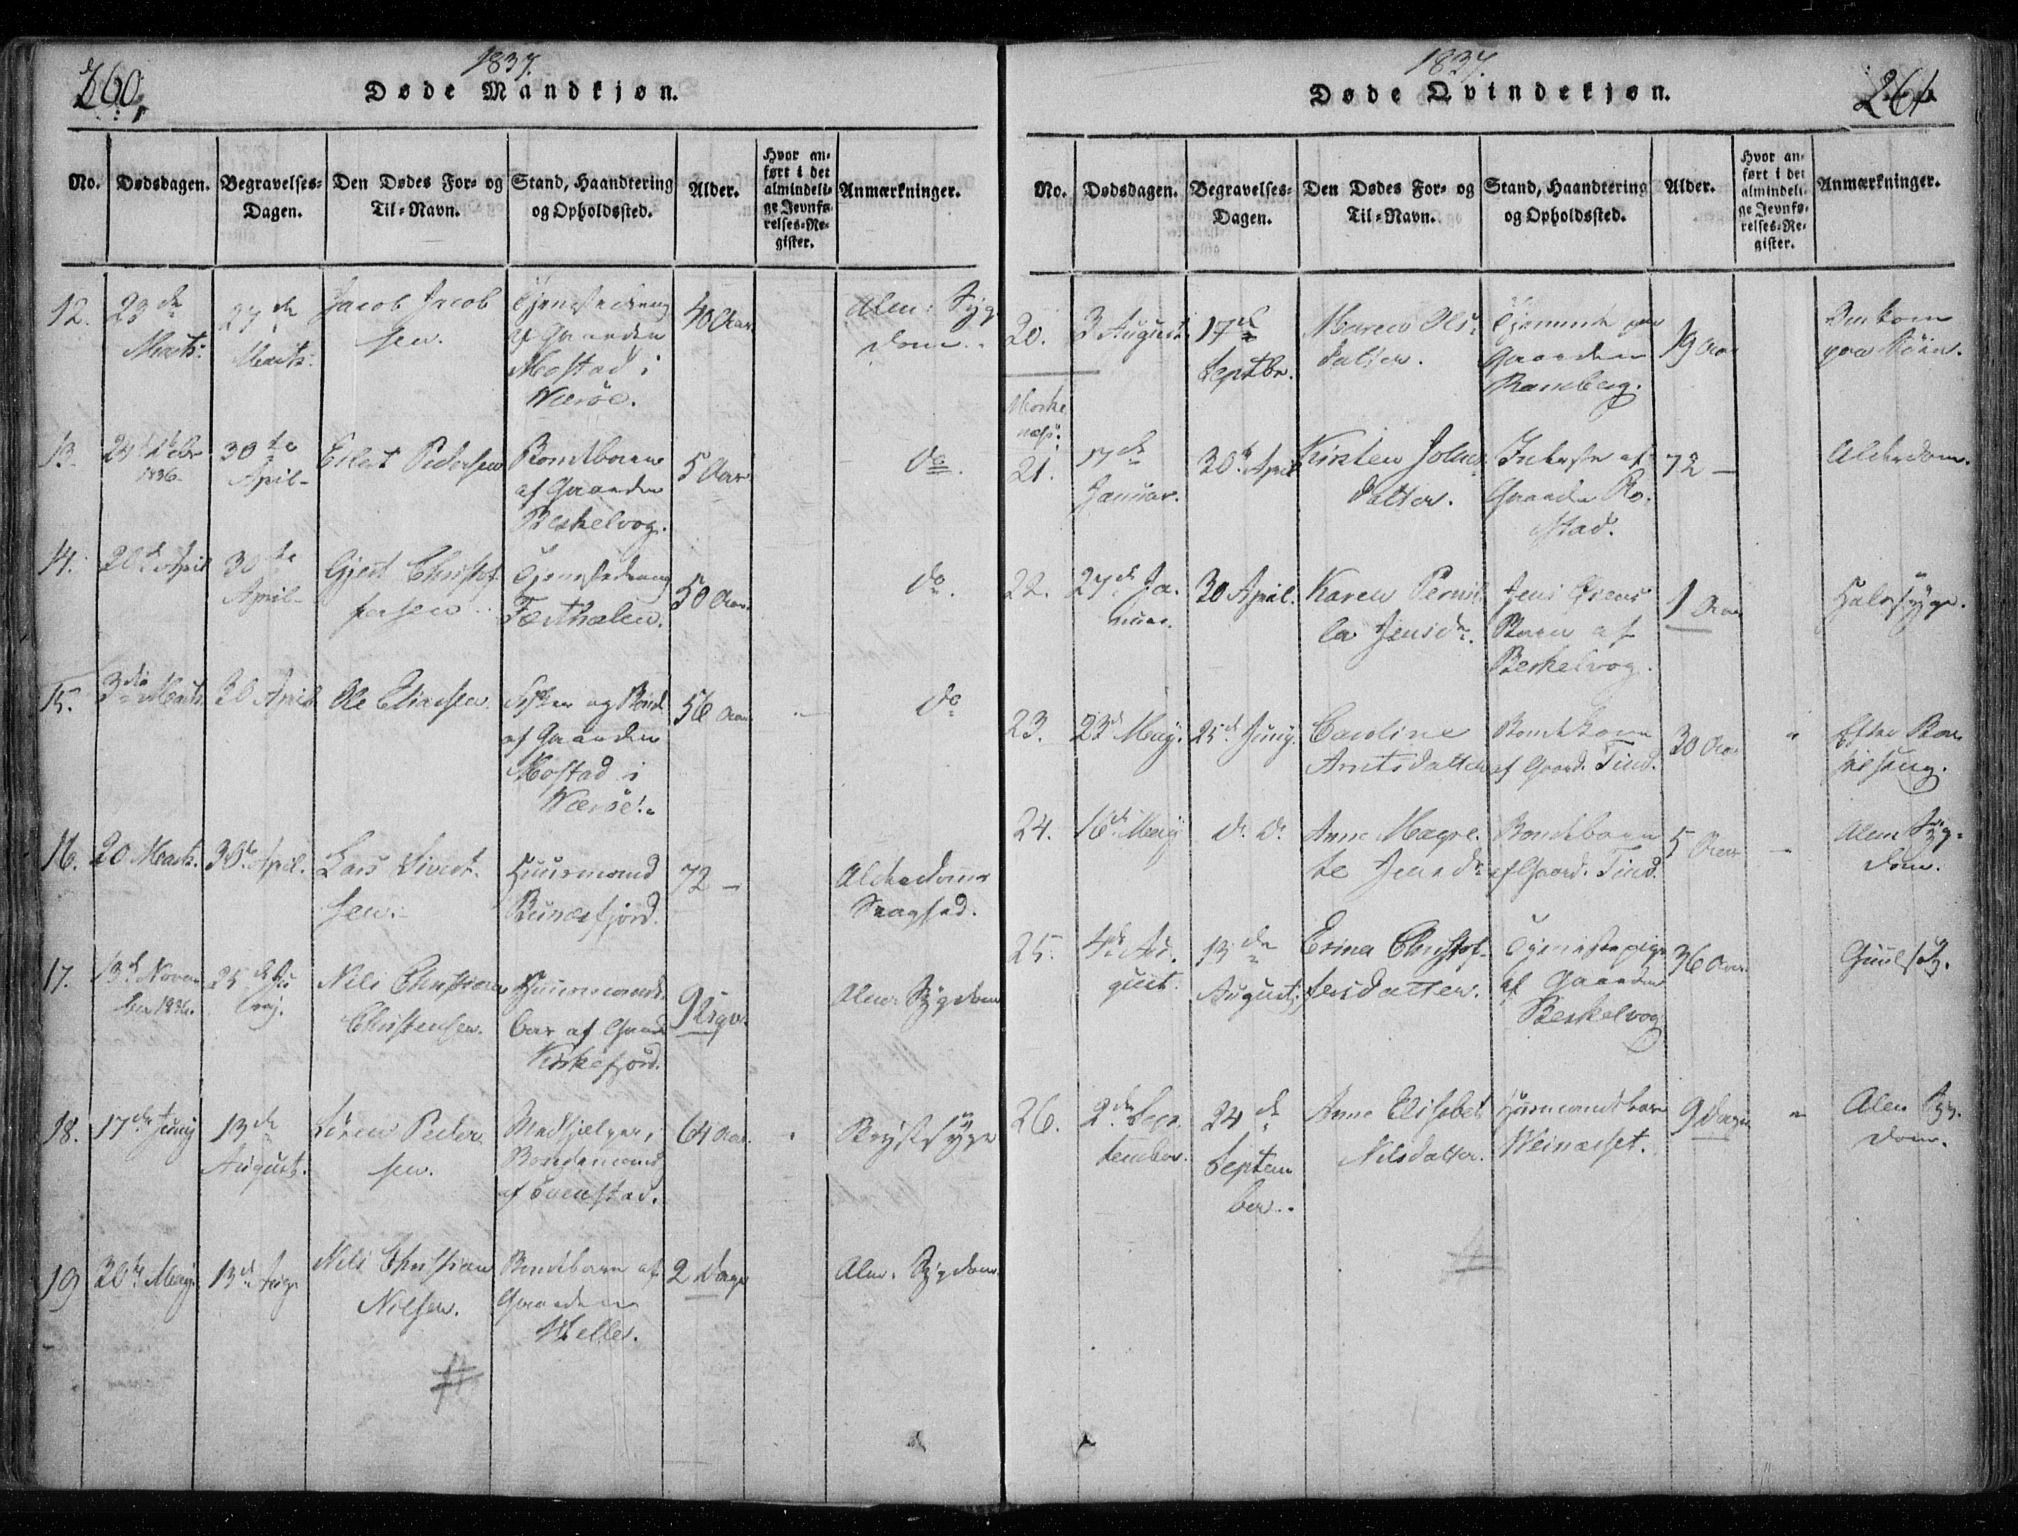 260,
1837.
Døde Mandkjøn.
No.
Dødsdagen.
Begravelses-
Dagen.
Den Dødes For- og
Til-Navn.
Stand, Haandtering
og Opholdssted.
Alder.
Hvor an-
ført i det
almindeli-
ge Jevnfø-
relses-Re-
gister.
Anmærkninger.
12.
23de
Marts.
27de
Marts.
Jacob Jacob
sen.
af Gaarden
Mostad i
Værøe.
40 Aar
Alm: Syg
dom.
13.
1836.
30te
April
Eilert Pedersen
Bondebarn
af Gaarden
Beskelvog.
5 Aar
do.
14.
20de April
30te
April
Gjert Christof
fersen
50 Aar.
do.
15.
3die Marts
30 April
Ole Eliassen
af Gaarden
Mostad i
Værøe.
56 Aar
do
16.
20 Marts.
30te April.
Lars Sivert-
sen.
Huusmand
Bunæsfjord.
72 —
Alderdoms
Svaghed.
17.
13de Novem
ber 1836.
25de Ju
Nils Christian
Christensen.
Huusmands-
barn af Gaard
Kirkefjord.
Alm: Sygdom
18.
17de Juny
13de
August.
Sören Peder
sen.
Bondemand
af Evenstad.
64 Aar.
Brystsyge
19
30te May
13de Aug.
Nils Christian
Nilsen.
Bondebarn af
Gaarden
Helle.
2 Dage
Alm. Sygdom.
1837.
Døde Qvindekjøn.
261
No.
Dødsdagen.
Begravelses-
Dagen.
Den Dødes For- og
Til-Navn.
Stand, Haandtering
og Opholdssted.
Alder.
Hvor an-
ført i det
almindeli-
ge Jevnfø-
relses-Re-
gister.
Anmærkninger.
20.
3 August
17de
Septbr.
Maren Ols-
datter.
Gaarden
Ramberg.
19 Aar
Omkom
paa Söen.
Moske
næs.
21.
17de
Januar.
30te April
Kirsten Johns
datter.
Inderste af
Gaarden Ro-
stad.
72 —
Alderdom.
22.
27de Ja-
nuar.
30 April.
Karen Pernil
la Jensdr.
Barn af
Beskelvog.
1 Aar
Halssyge.
23.
23de May.
25de Juny.
Caroline
Arntsdatter
Bondekone
af Gaard. Tind.
30 Aar
Efter Bar-
selseng.
24.
16de May
do. do.
Anne Magre-
te Jensdr
Bondebarn
af Gaard. Tind.
5 Aar
Alm Syg-
dom.
25.
4de Au-
gust.
13de
August
Erina Christof-
fersdatter.
Tjenestepige
af Gaarden
Beskelvog
36 Aar.
Guulsot.
26.
2de Sep-
tember.
24de
Septem
ber.
Anne Elisabet
Nilsdatter.
Huusmandsbarn
Reinæsset.
9 Dage
Alm Syg-
dom.